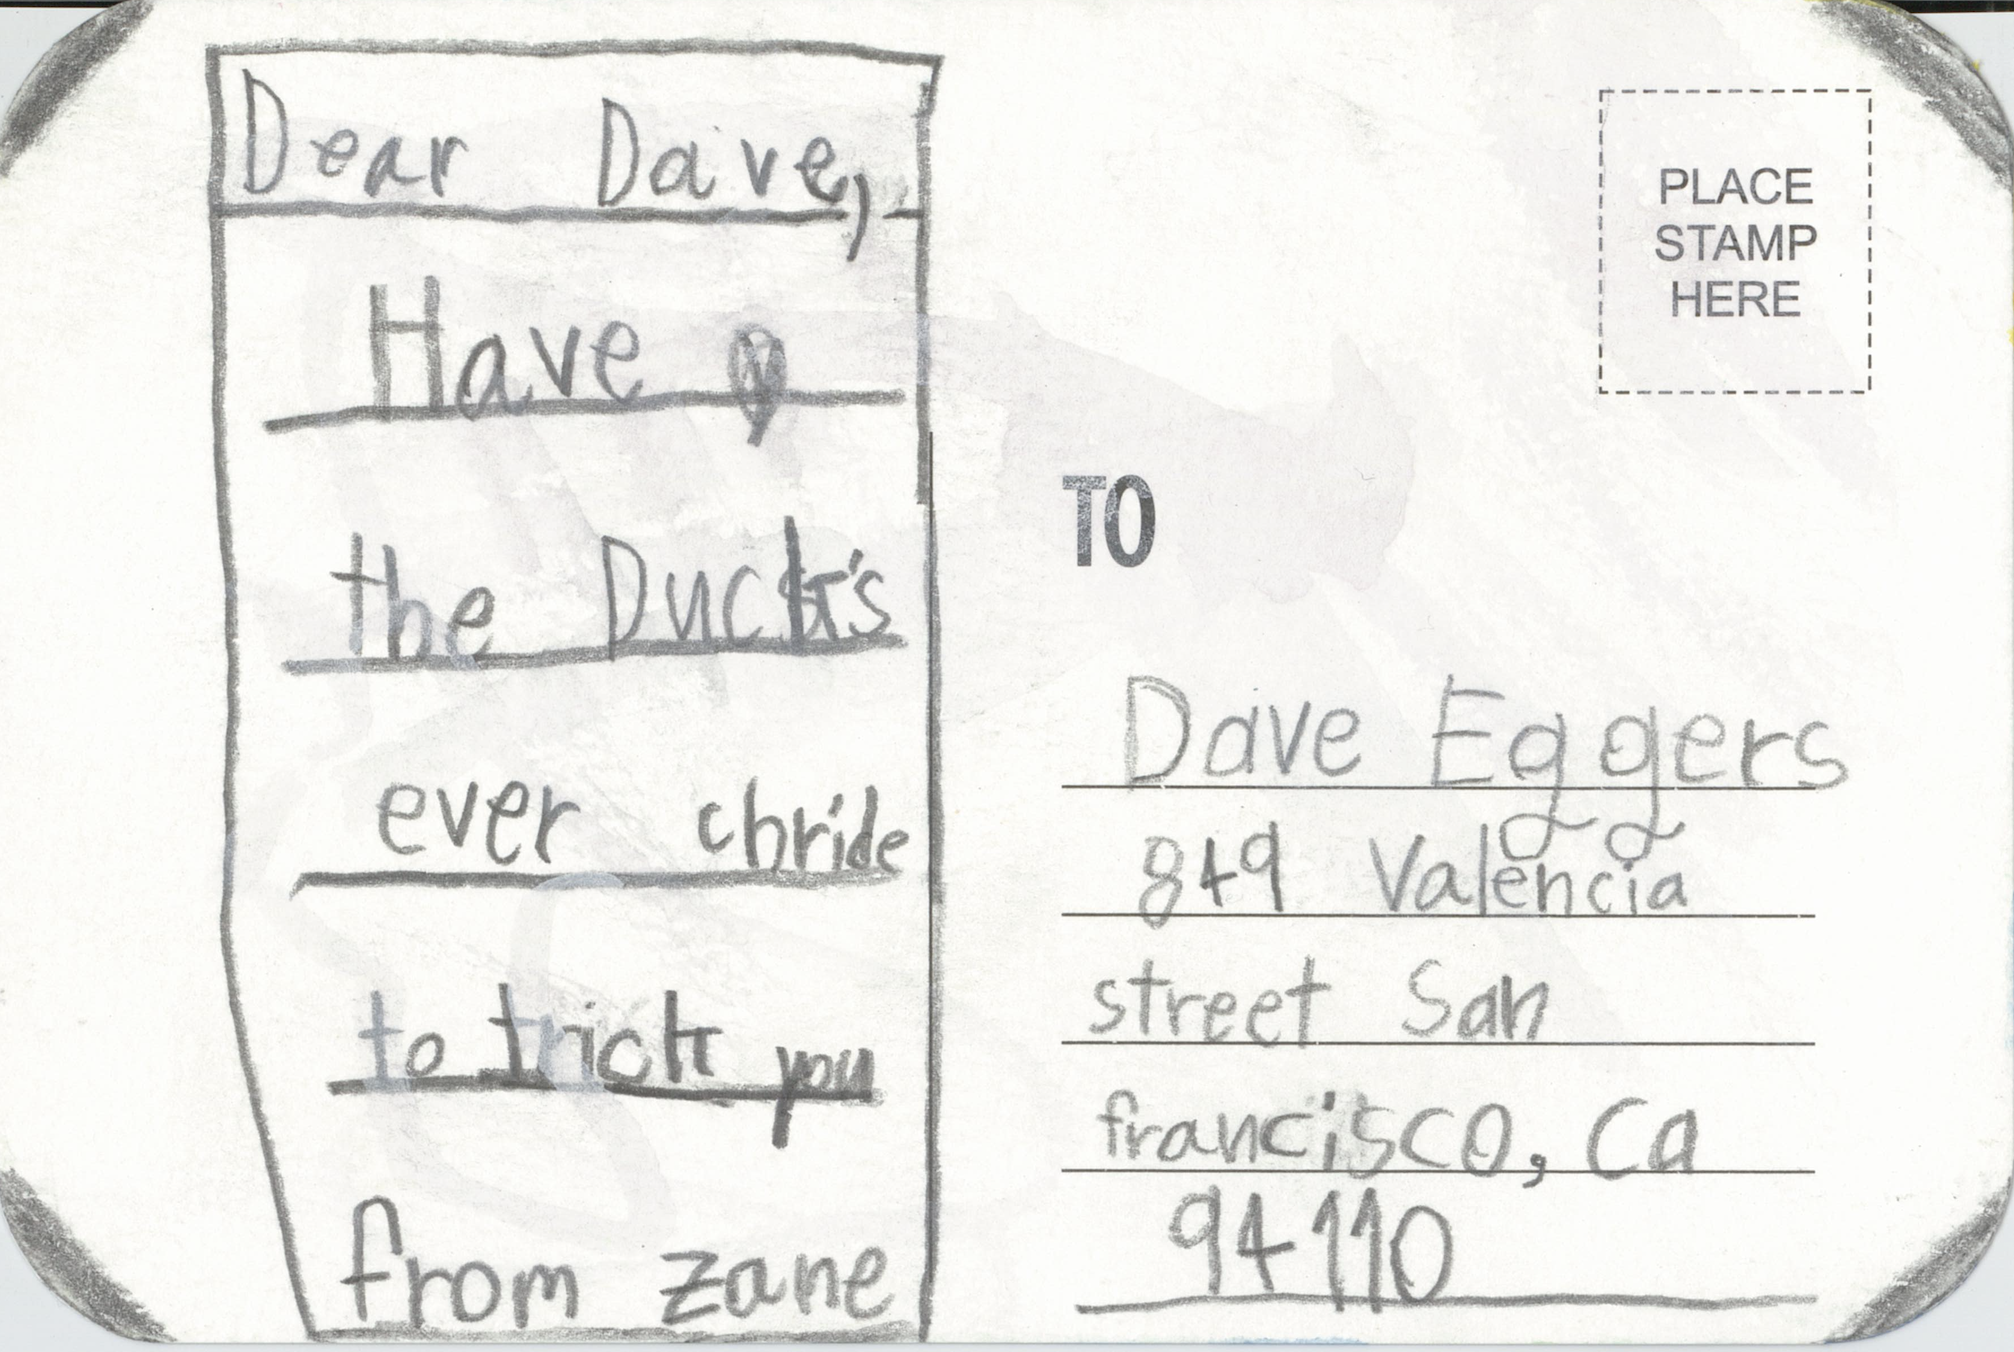 Dear Dave,
Have
the Duck's
ever chride
to trick you
from zane
PLACE
STAMP
HERE
TO
Dave Eggers
849 Valencia
street San
francisco, Ca
94110